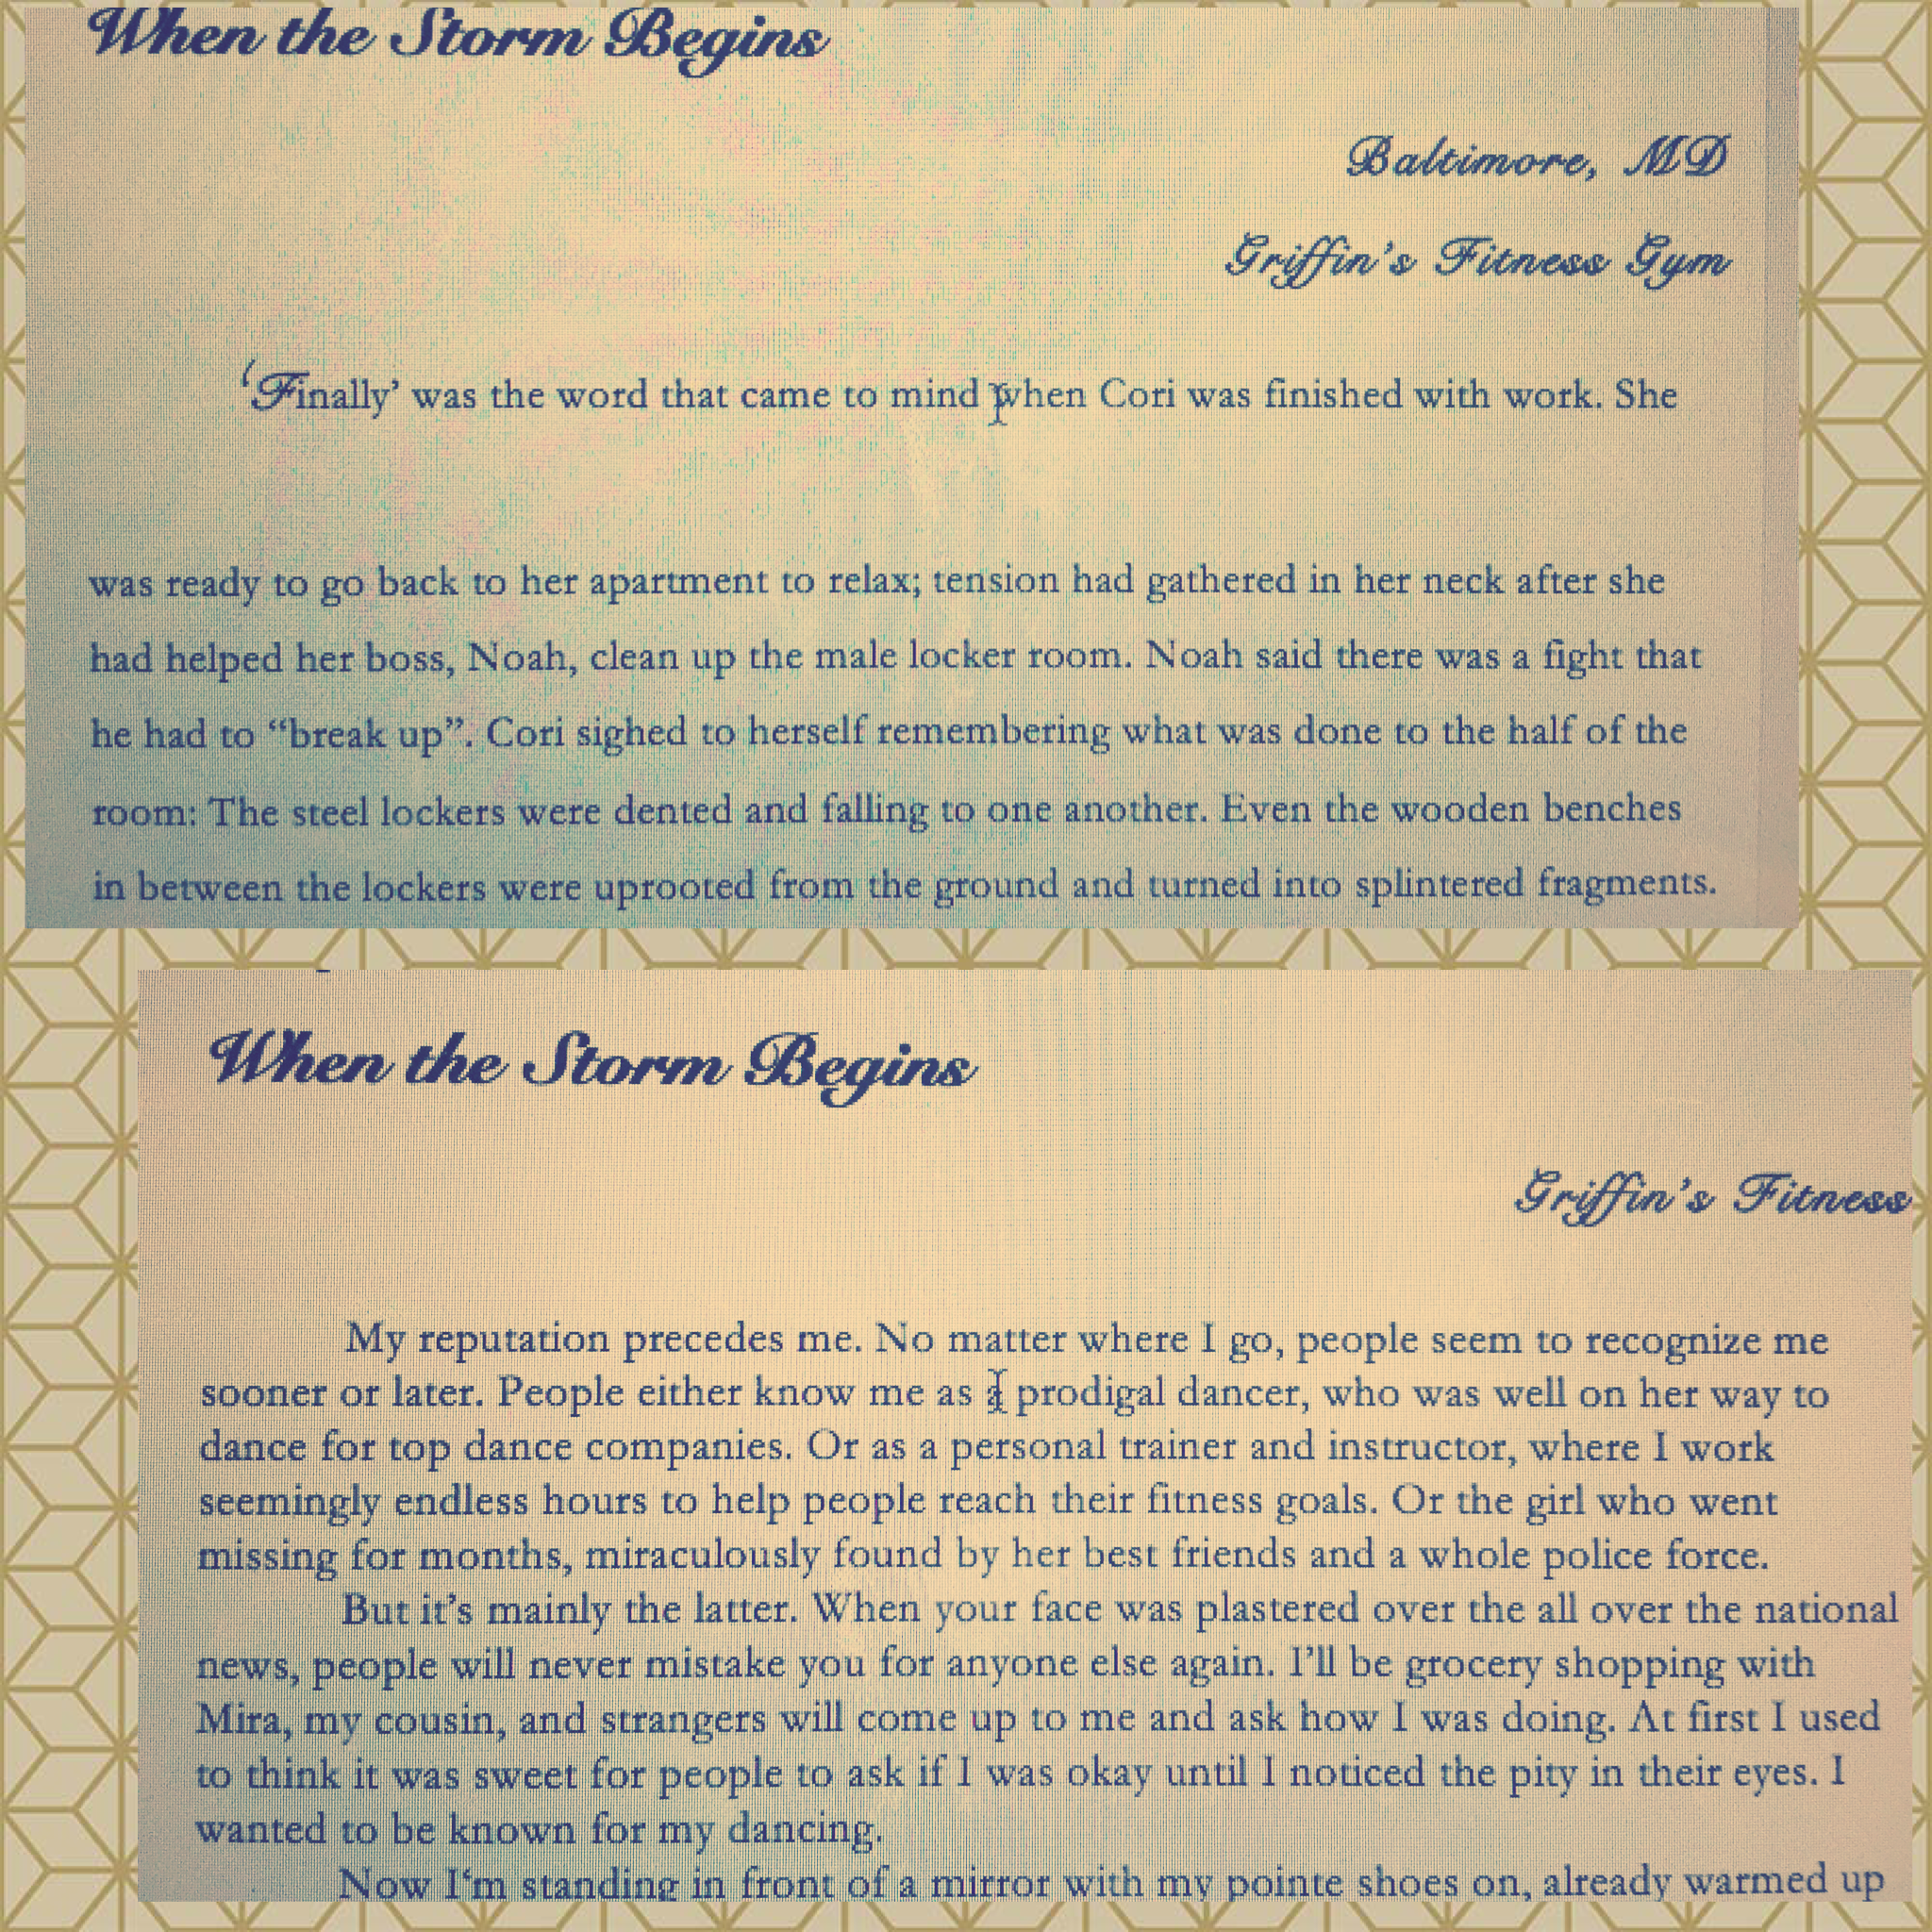 When the Storm Begins
Baltimore, MD
Griffin's Fitness Gym
‘Finally’ was the word that came to mind when Cori was finished with work. She
was ready to go back to her apartment to relax; tension had gathered in her neck after she
had helped her boss, Noah, clean up the male locker room. Noah said there was a fight that
he had to “break up”. Cori sighed to herself remembering what was done to the half of the
room: The steel lockers were dented and falling to one another. Even the wooden benches
in between the lockers were uprooted from the ground and turned into splintered fragments.
When the Storm Begins
Griffin's Fitness
My reputation precedes me. No matter where I go, people seem to recognize me
sooner or later. People either know me as a prodigal dancer, who was well on her way to
dance for top dance companies. Or as a personal trainer and instructor, where I work
seemingly endless hours to help people reach their fitness goals. Or the girl who went
missing for months, miraculously found by her best friends and a whole police force.
But it's mainly the latter. When your face was plastered over the all over the national
news, people will never mistake you for anyone else again. I'll be grocery shopping with
Mira, my cousin, and strangers will come up to me and ask how I was doing. At first I used
to think it was sweet for people to ask if I was okay until I noticed the pity in their eyes. I
wanted to be known for my dancing.
Now I‘m standing in front of a mirror with my pointe shoes on, already warmed up